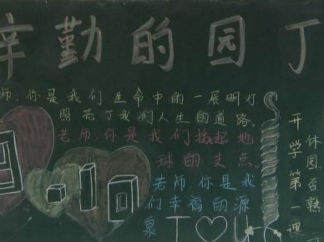 辛勤的园丁
师,你是我们生命中的一展明灯
照亮了我们人生的道路。
老师,你是我们撬起地
球的支点。
老师,你是我
们幸福的源
泉
I♡U
开学第一